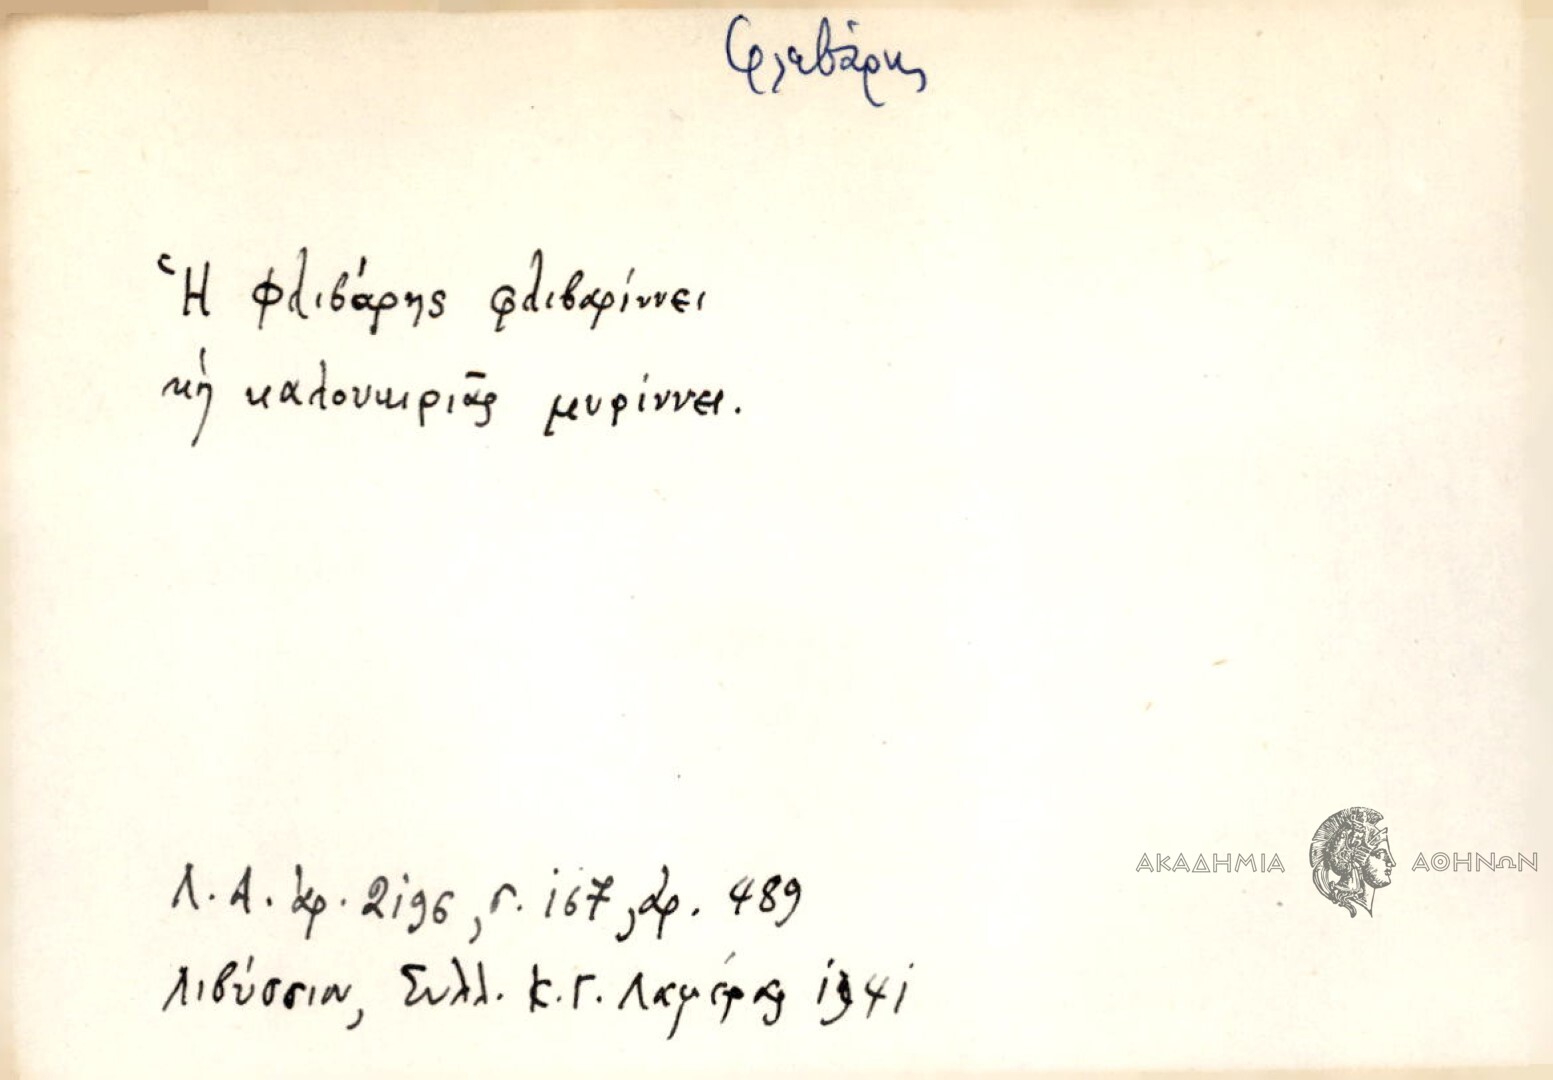 Φλεβάρης
Ἡ Φλιβάρης φλιβαρίννει
κὴ καλουκιριᾶς μυρίννει.
Λ.Α. ἀρ. 2196, σ. 167, ἀρ. 489
Λιβύσσιον, Συλλ. Κ.Γ. 1941
ΑΚΑΔΗΜΙΑ ΑΘΗΝΩΝ